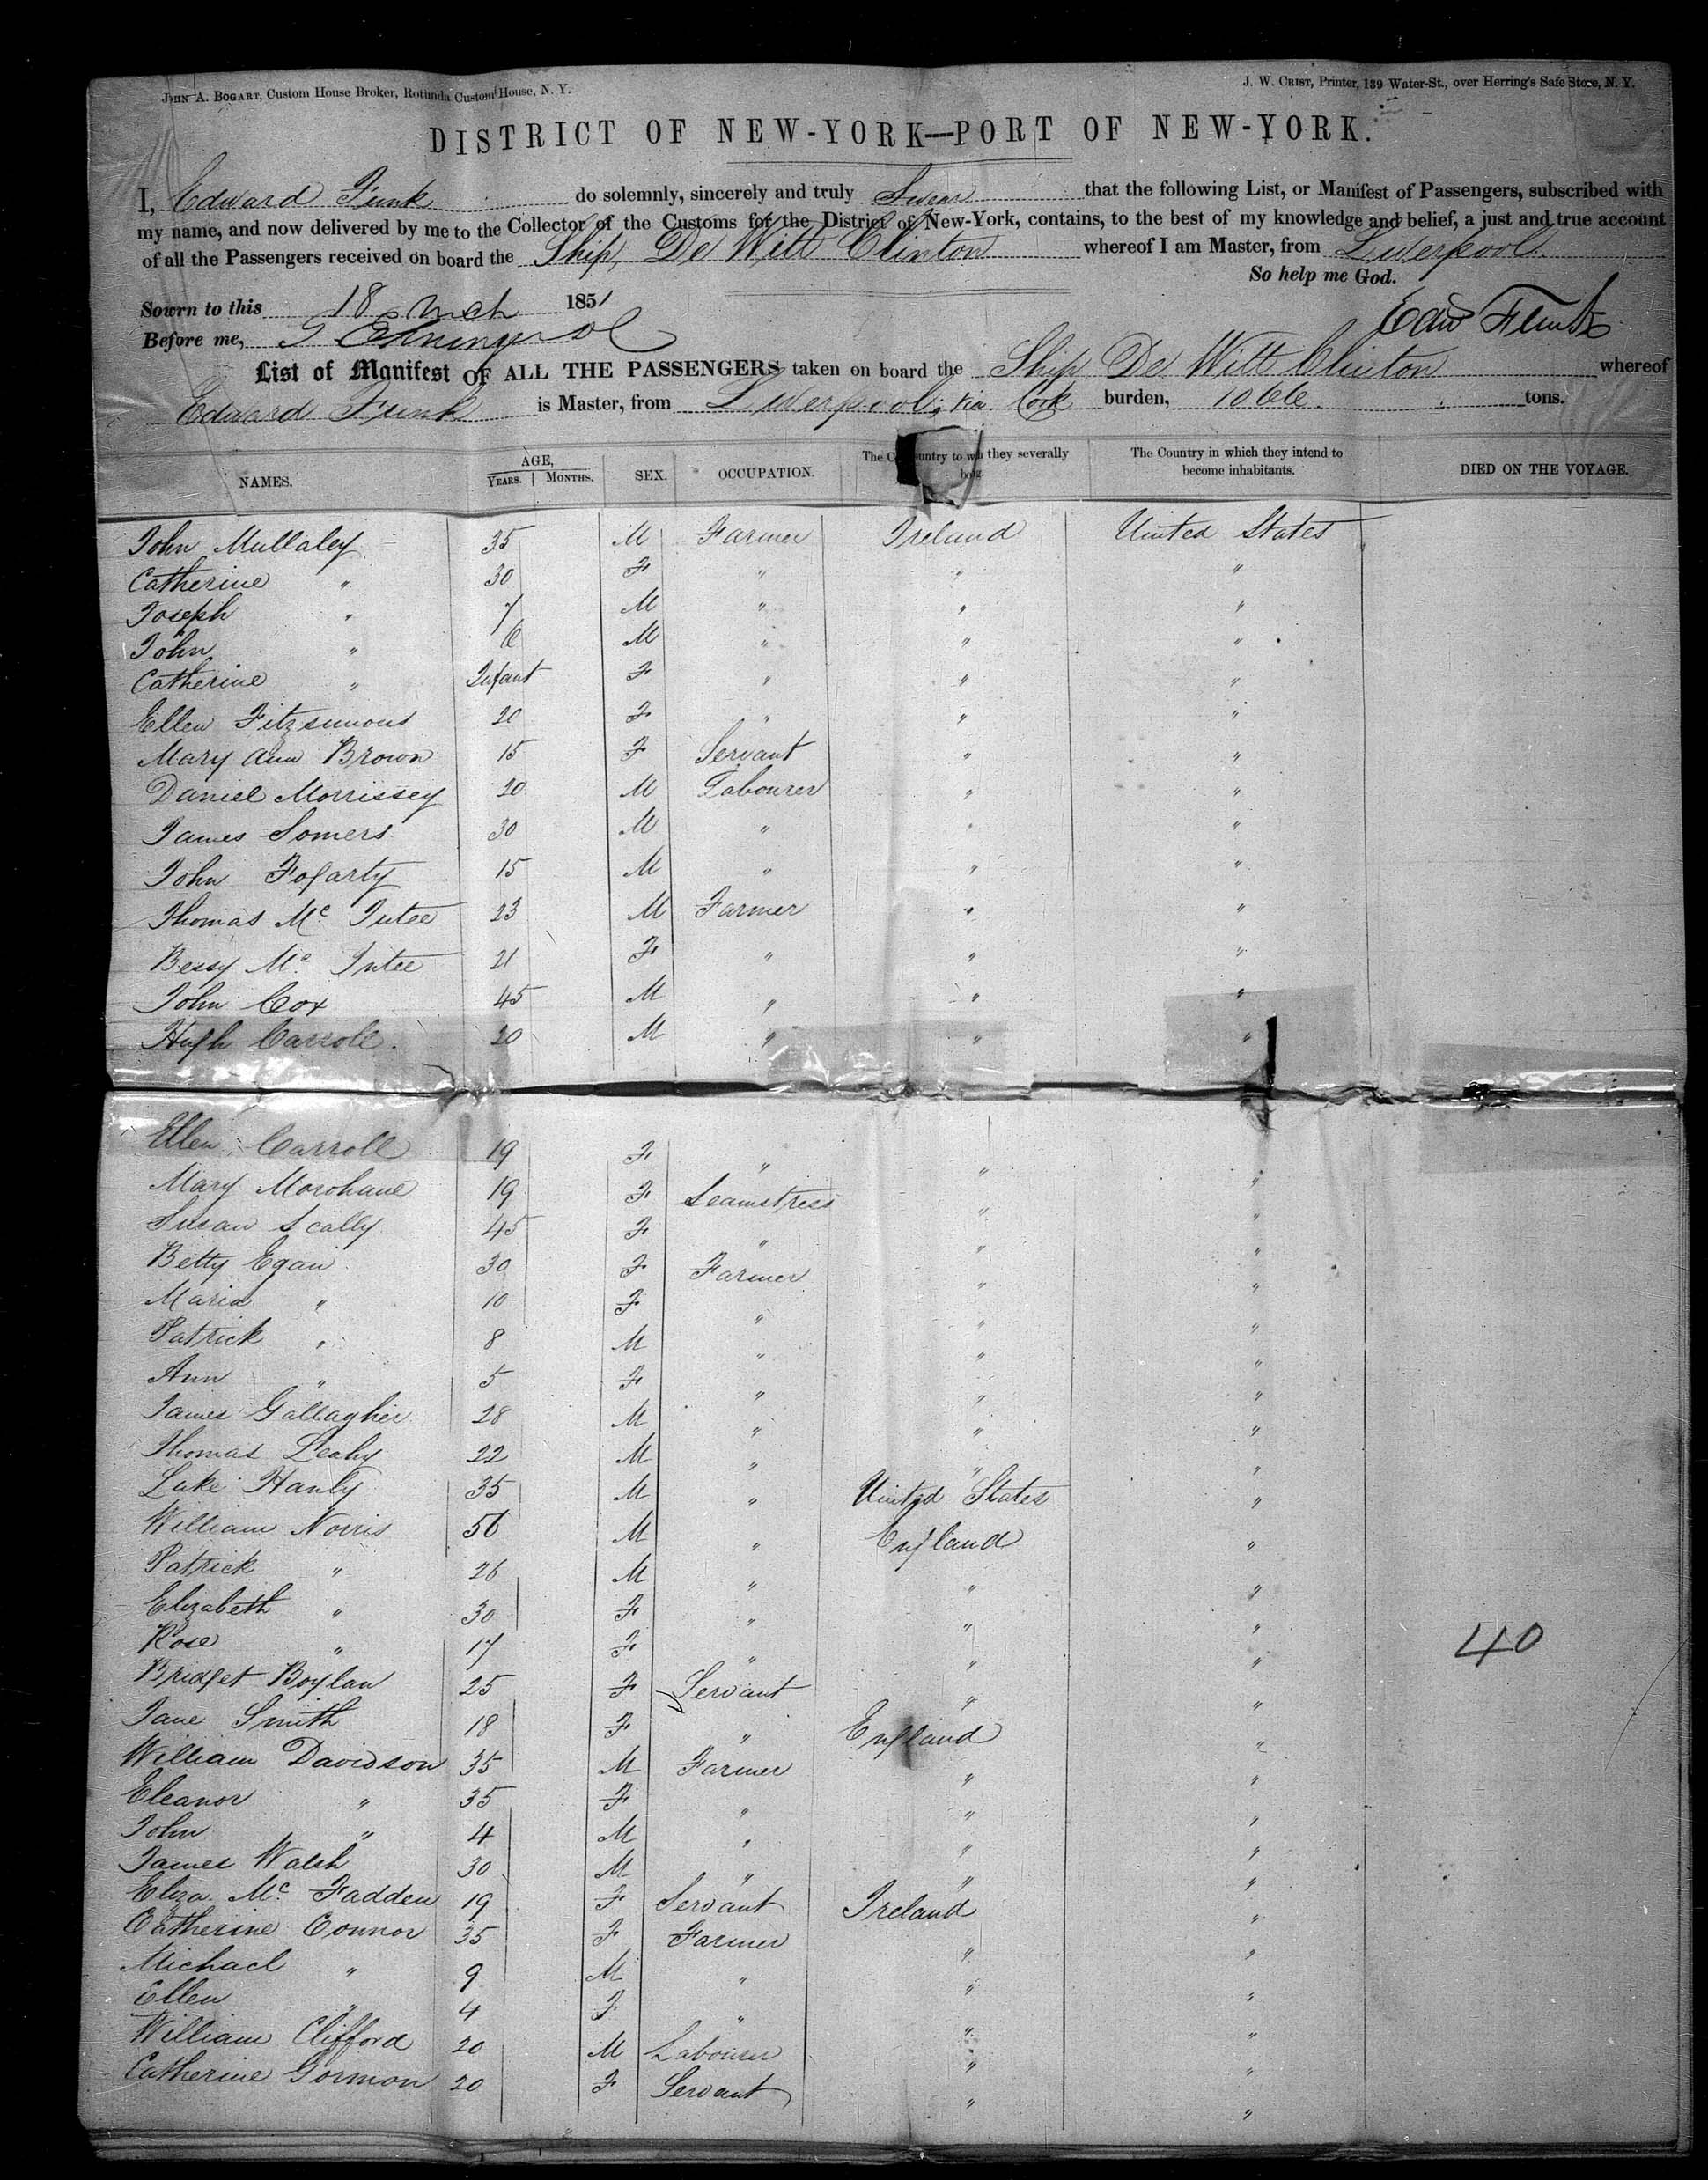 JOHN A. BOGART, Custom House Broker, Rotunda Custom House, N. Y.
J. W. CRIST, Printer, 139 Water-St., over Herring's Safe Store, N. Y.
DISTRICT OF NEW-YORK—PORT OF NEW-YORK.
I, Edward Funk do solemnly, sincerely and truly Swear that the following List, or Manifest of Passengers, subscribed with
my name, and now delivered by me to the Collector of the Customs for the District of New-York, contains, to the best of my knowledge and belief, a just and true account
of all the Passengers received on board the Ship, De Witt Clinton whereof I am Master, from Liverpool.
So help me God.
Sowrn to this 18 Mch 1851
Edw
Before me,
List of Manifest OF ALL THE PASSENGERS taken on board the Ship De Witt Clinton whereof
Edward Funk is Master, from Liverpool; via Cork burden, 1066. tons.
NAMES. AGE, YEARS. MONTHS. SEX. OCCUPATION. The Country to wh they severally belg. The Country in which they intend to become inhabitants. DIED ON THE VOYAGE.
John Mullaley 35 M Farmer Ireland United States
Catherine " 30 F " " "
Joseph " 7 M " " "
John " 6 M " " "
Catherine " Infant F " " "
Ellen Fitzsimons 20 F " " "
Mary Ann Brown 15 F Servant " "
Daniel Morrissey 20 M Labourer " "
James Somers 30 M " " "
John Fogarty 15 M " " "
Thomas Mc Intee 23 M Farmer " "
Bessy Mc. Intee 21 F " " "
John Cox 45 M " " "
Hugh Carroll. 20 M " " "
Ellen Carroll 19 F " " "
Mary Morohane 19 F Seamstress " "
Susan Scally 45 F " " "
Betty Egan 30 F Farmer " "
Maria " 10 F " " "
Patrick " 8 M " " "
Ann " 5 F " " "
James Gallagher 28 M " " "
Thomas Leahy 22 M " " "
Luke Hanly 35 M " United States "
William Norris 56 M " England "
Patrick " 26 M " " "
Elizabeth " 30 F " " "
Rose " 17 F " " "
40
Bridget Boylan 25 F Servant " "
Jane Smith 18 F " England "
William Davidson 35 M Farmer " "
Eleanor " 35 F " " "
John " 4 M " " "
James Walsh 30 M " " "
Eliza. Mc. Fadden 19 F Servant Ireland "
Catherine Connor 35 F Farmer " "
Michael " 9 M " " "
Ellen " 4 F " " "
William Clifford 20 M Labourer " "
Catherine Gormon 20 F Servant " "